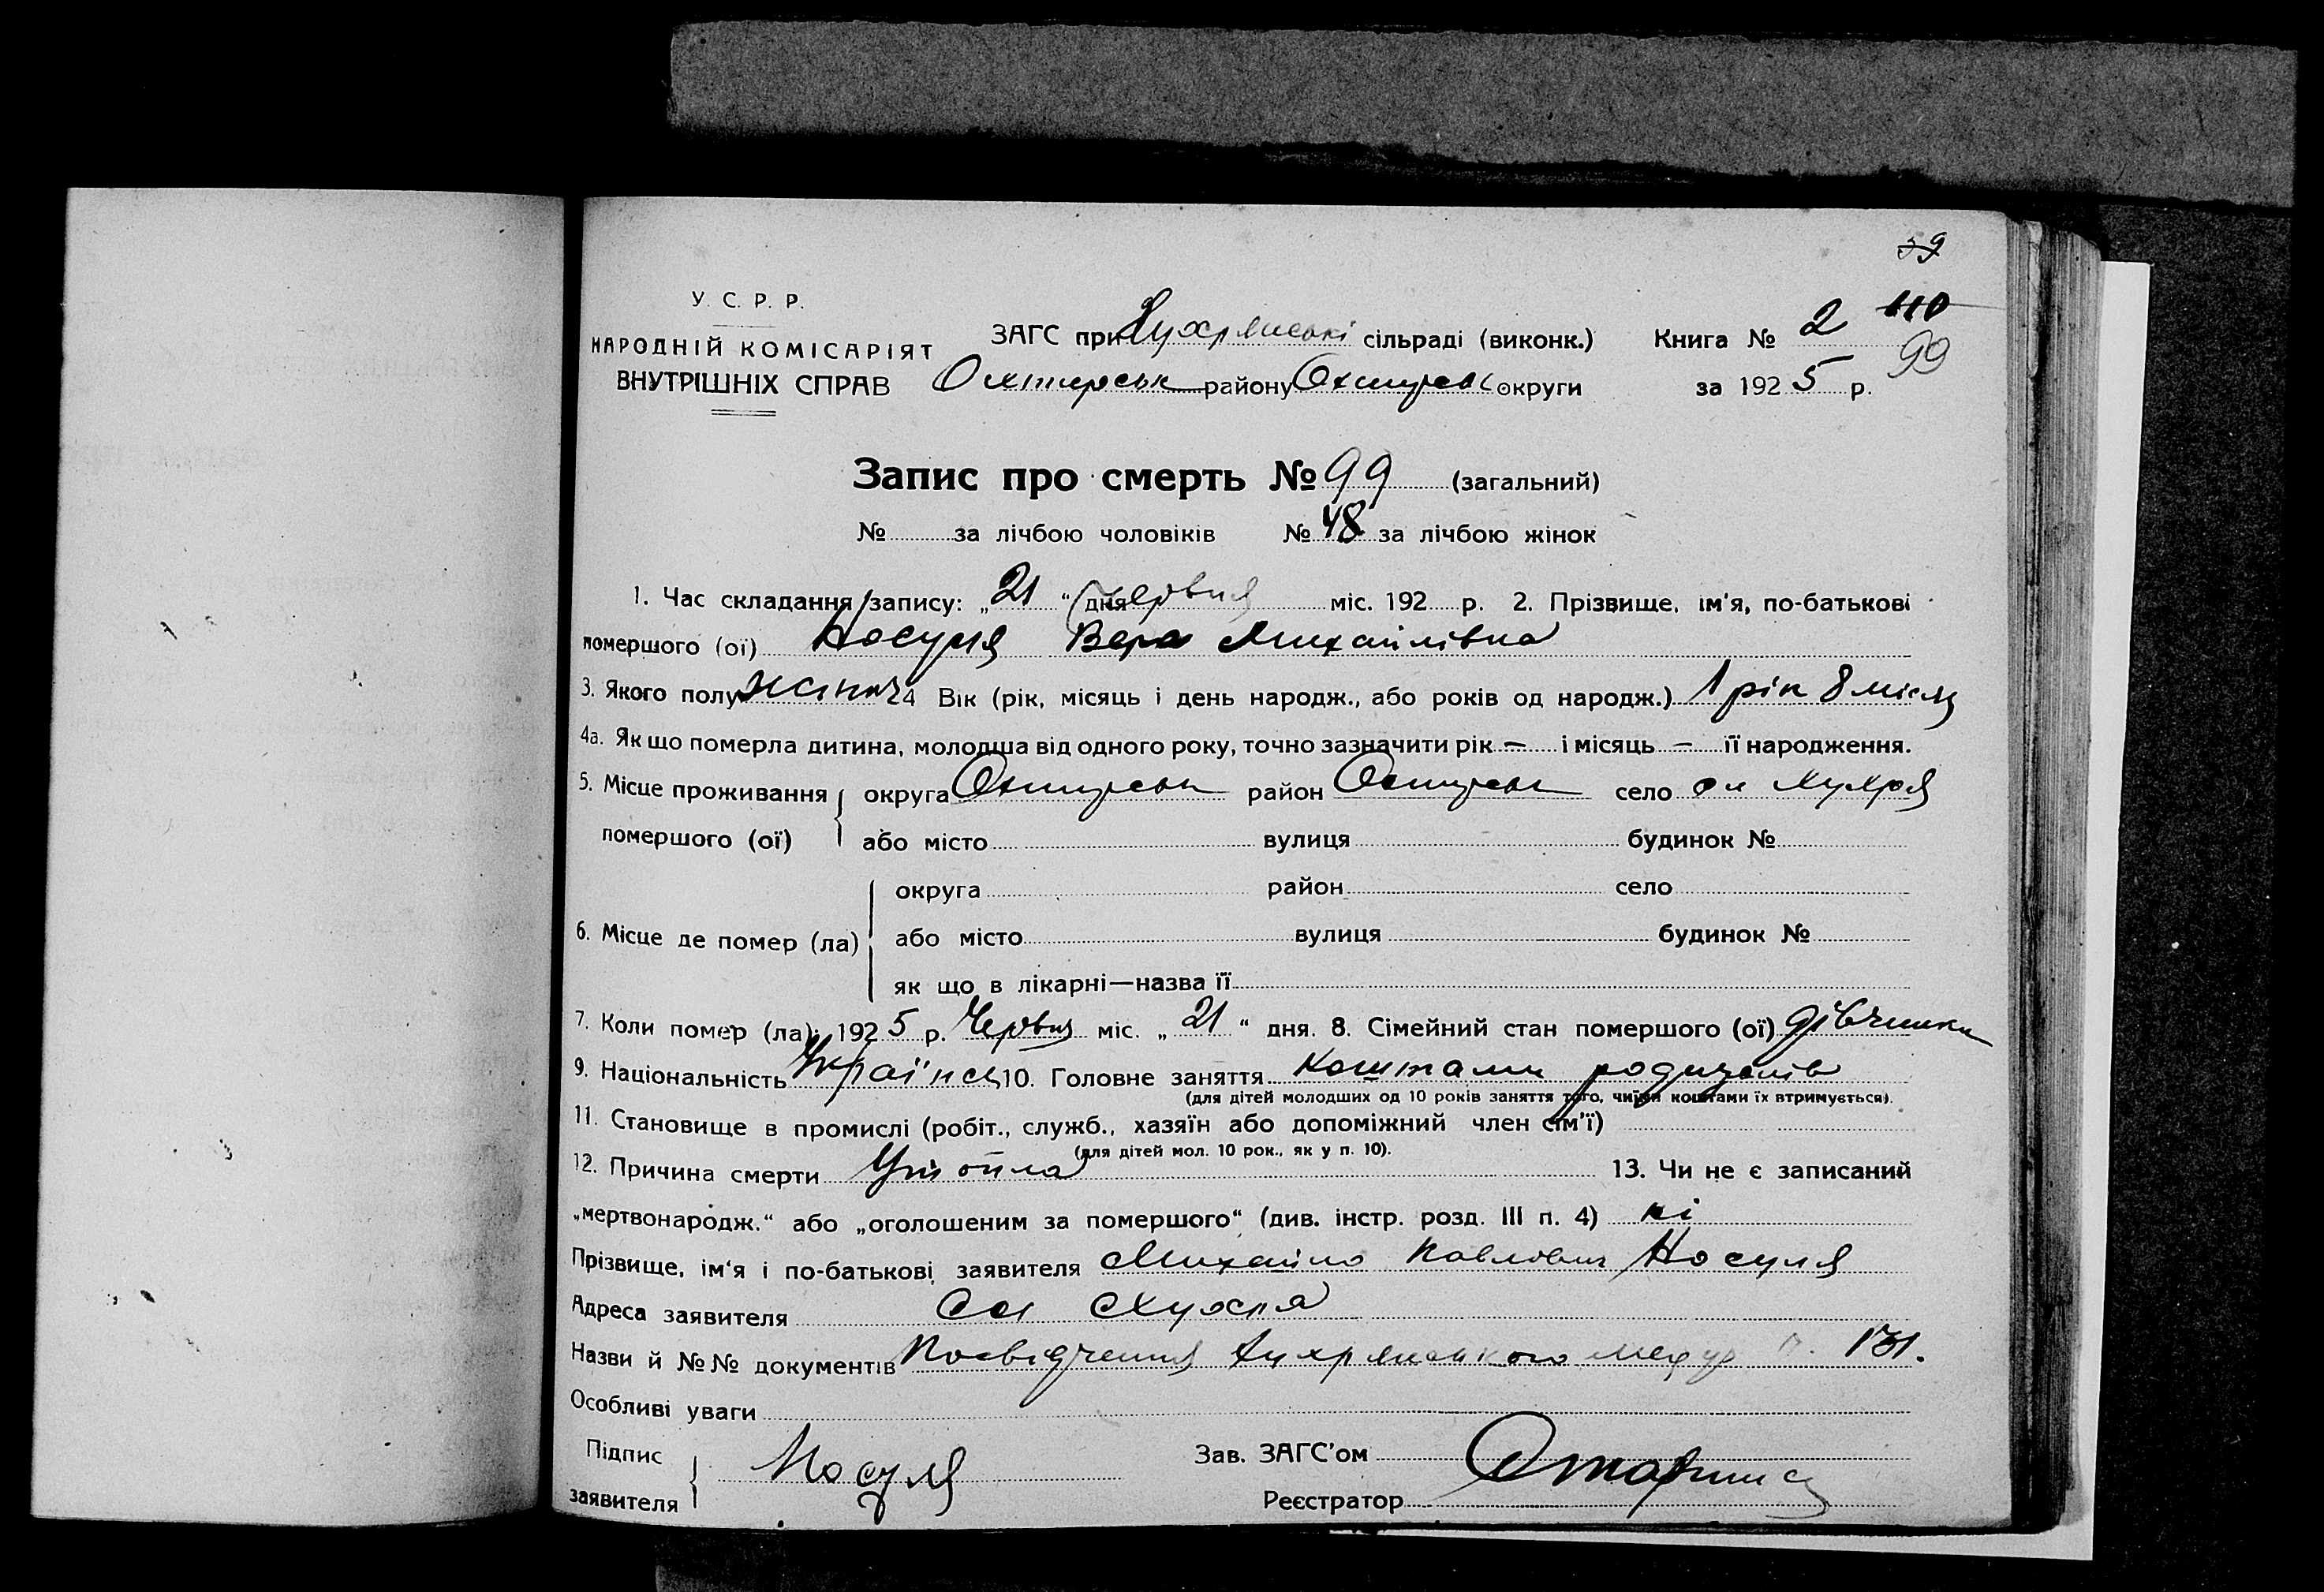 39
У. С. Р. Р.
НАРОДНІЙ КОМІСАРІЯТ
ВНУТРІШНІХ СПРАВ
ЗАГС при Хухрянські сільраді (виконк.) Книга № 2 110
Охтирськ району Охтирськ округи за 1925 р. 99
Запис про смерть № 99 (загальний)
№ за лічбою чоловіків № 48 за лічбою жінок
1. Час складання запису: „21“ дня червня міс. 192 р. 2. Прізвище, ім'я, по-батькові
помершого (ої) Носуля Вера Михайлівна
3. Якого полу жіноч 4 Вік (рік, місяць і день народж., або років од народж.) 1 рік 8 місяц
4а. Як що померла дитина, молодша від одного року, точно зазначити рік — і місяць — її народження.
5. Місце проживання помершого (ої) округа Охтирськ район Охтирськ село сл Хухря
або місто вулиця будинок №
6. Місце де помер (ла) округа район село
або місто вулиця будинок №
як що в лікарні—назва її
7. Коли помер (ла): 1925 р. Червня міс. „21“ дня. 8. Сімейний стан помершого (ої) дівчинка
9. Національність Україн 10. Головне заняття коштами родителів
(для дітей молодших од 10 років заняття того, чиїми коштами їх втримується).
11. Становище в промислі (робіт., служб., хазяїн або допоміжний член сім'ї)
(для дітей мол. 10 рок., як у п. 10).
12. Причина смерти 13. Чи не є записаний
„мертвонародж.“ або „оголошеним за помершого“ (див. інстр. розд. III п. 4) ні
Прізвище, ім'я і по-батькові заявителя Михайло Павлович Носуля
Адреса заявителя Сл Хухря
Назви й №№ документів Посвідчення Хухрянського 131.
Особливі уваги
Підпис заявителя Носуля
Зав. ЗАГС'ом
Реєстратор